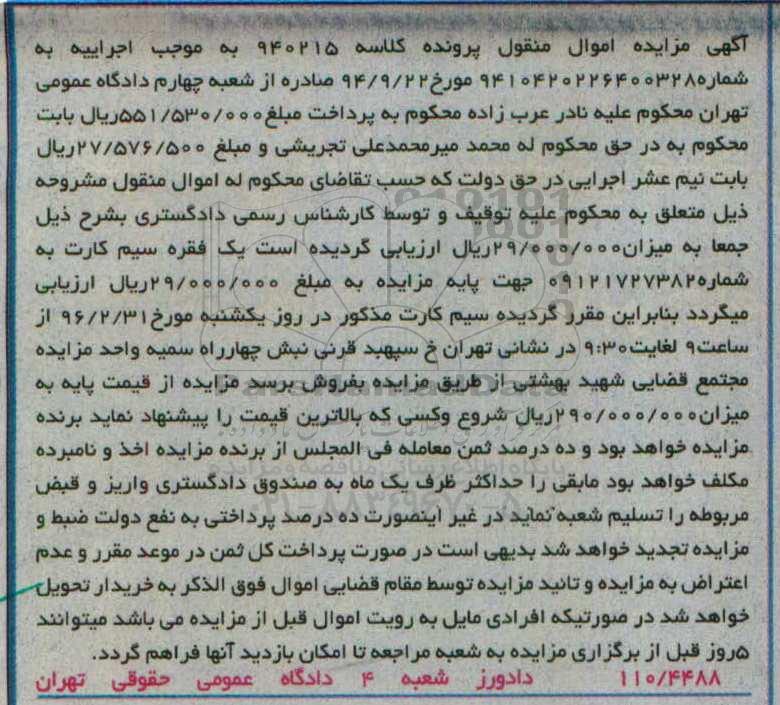 آگهی مزایده اموال منقول پرونده کلاسه ۹۴۰۲۱۵ به موجب اجراییه به
شماره۹۴۱۰۴۲۰۲۲۶۴۰۰۳۲۸ مورخ۹۴/۹/۲۲ صادره از شعبه چهارم دادگاه عمومی
تهران محکوم علیه نادر عرب زاده محکوم به پرداخت مبلغ۵۵۱/۵۳۰/۰۰۰ریال بابت
محکوم به در حق محکوم له محمد میرمحمدعلی تجریشی و مبلغ ۲۷/۵۷۶/۵۰۰ریال
بابت نیم عشر اجرایی در حق دولت که حسب تقاضای محکوم له اموال منقول مشروحه
ذیل متعلق به محکوم علیه توقیف و توسط کارشناس رسمی دادگستری بشرح ذیل
جمعا به میزان۲۹/۰۰۰/۰۰۰ریال ارزیابی گردیده است یک فقره سیم کارت به
شماره۰۹۱۲۱۷۲۷۳۸۲ جهت پایه مزایده به مبلغ ۲۹/۰۰۰/۰۰۰ریال ارزیابی
میگردد بنابراین مقرر گردیده سیم کارت مذکور در روز یکشنبه مورخ۹۶/۲/۳۱ از
ساعت۹ لغایت۹:۳۰ در نشانی تهران خ سپهبد قرنی نبش چهارراه سمیه واحد مزایده
مجتمع قضایی شهید بهشتی از طریق مزایده بفروش برسد مزایده از قیمت پایه به
میزان۲۹۰/۰۰۰/۰۰۰ریال شروع وکسی که بالاترین قیمت را پیشنهاد نماید برنده
مزایده خواهد بود و ده درصد ثمن معامله فی المجلس از برنده مزایده اخذ و نامبرده
مکلف خواهد بود مابقی را حداکثر ظرف یک ماه به صندوق دادگستری واریز و قبض
مربوطه را تسلیم شعبه نماید در غیر اینصورت ده درصد پرداختی به نفع دولت ضبط و
مزایده تجدید خواهد شد بدیهی است در صورت پرداخت کل ثمن در موعد مقرر و عدم
اعتراض به مزایده و تائید مزایده توسط مقام قضایی اموال فوق الذکر به خریدار تحویل
خواهد شد در صورتیکه افرادی مایل به رویت اموال قبل از مزایده می باشد میتوانند
۵روز قبل از برگزاری مزایده به شعبه مراجعه تا امکان بازدید آنها فراهم گردد.
۱۱۰/۴۴۸۸ دادورز شعبه ۴ دادگاه عمومی حقوقی تهران